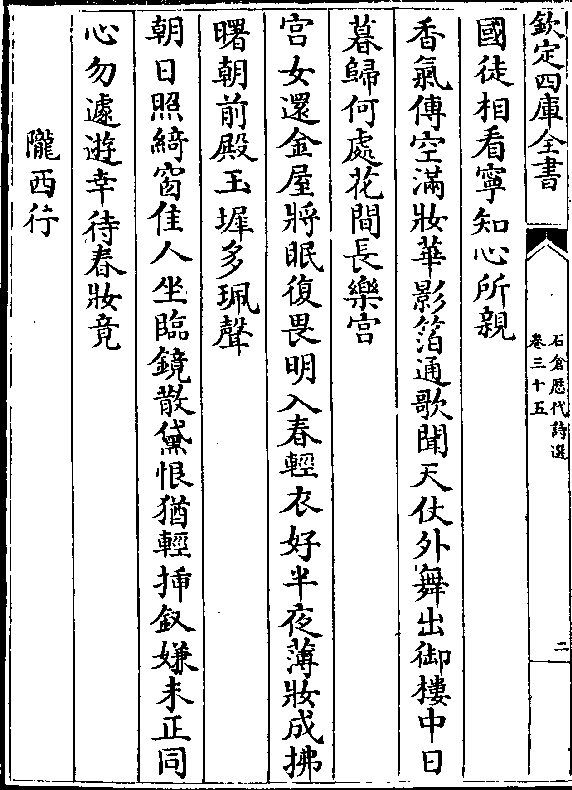 欽定四庫全書
石倉歴代詩選
卷三十五
二
國徒相看寧知心所親
香氣傳空滿妝華影箔通歌聞天仗外舞出御樓中日
暮歸何處花間長樂宮
宮女還金屋將眠復畏明入春輕衣好半夜薄妝成拂
曙朝前殿玉墀多珮聲
朝日照綺窗佳人坐臨鏡散黛恨猶輕揷釵嫌未正同
心勿遽遊幸待春妝竟
隴西行